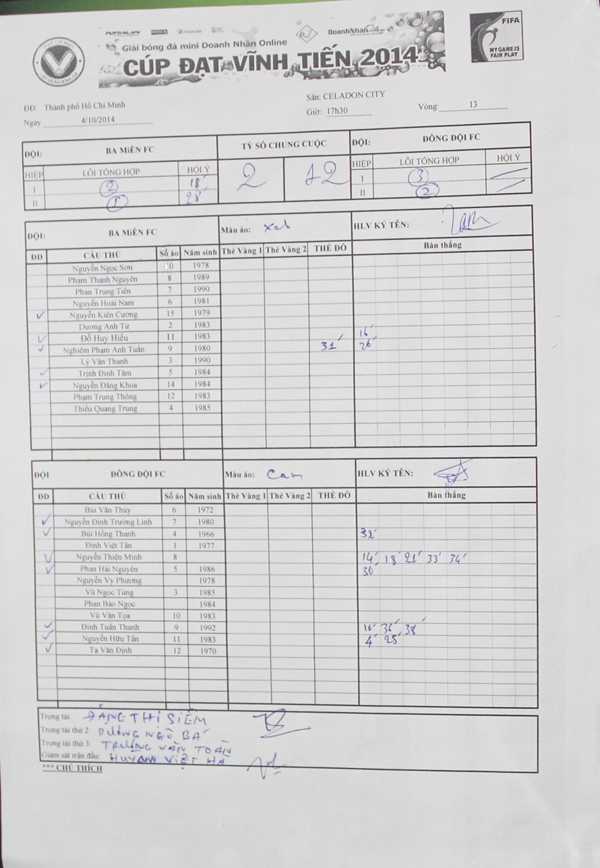 Giải bóng đá mini Doanh Nhân Online
DoanhNhân
CÚP ĐẠT VĨNH TIẾN 2014
FIFA
MY GAME IS
FAIR PLAY
ĐĐ: Thành phố Hồ Chí Minh Sân: CELADON CITY
Ngày 4/10/2014 Giờ: 17h30 Vòng: 13
ĐỘI: BA MIỀN FC TỶ SỐ CHUNG CUỘC ĐỘI: ĐỒNG ĐỘI FC
HIỆP LỖI TỔNG HỢP HỘI Ý 2 12 HIỆP LỖI TỔNG HỢP HỘI Ý
I 2 18' I 3
II 1 28' II 2
ĐỘI: BA MIỀN FC Màu áo: HLV KÝ TÊN:
ĐD CẦU THỦ Số áo Năm sinh Thẻ Vàng 1 Thẻ Vàng 2 THẺ ĐỎ Bàn thắng
Nguyễn Ngọc Sơn 1978
Phạm Thanh Nguyên 8 1989
Phan Trung Tiến 7 1990
Nguyễn Hoài Nam 6 1981
✓ Nguyễn Kiên Cường 15 1979
Dương Anh Tứ 2 1983
✓ Đỗ Huy Hiếu 11 1983 16'
✓ Nghiêm Phạm Anh Tuấn 9 1980 31' 26'
Lý Văn Thanh 3 1990
✓ Trịnh Đình Tâm 5 1984
✓ Nguyễn Đăng Khoa 14 1984
Phạm Trung Thông 12 1983
Thiều Quang Trung 4 1985
ĐỘI ĐỒNG ĐỘI FC Màu áo: Cam HLV KÝ TÊN:
ĐD CẦU THỦ Số áo Năm sinh Thẻ Vàng 1 Thẻ Vàng 2 THẺ ĐỎ Bàn thắng
Bùi Văn Thúy 6 1972
✓ Nguyễn Đình Trường Linh 7 1980
✓ Bùi Hồng Thanh 4 1966 32'
Đinh Việt Tân 1 1977
✓ Nguyễn Thiện Minh 8 14' 18' 21' 33' 34'
✓ Phan Hải Nguyên 5 1986 30'
Nguyễn Vy Phương 1978
Vũ Ngọc Tùng 3 1985
Phan Bảo Ngọc 1984
Vũ Văn Tọa 10 1983
✓ Đinh Tuấn Thanh 9 1992 16' 36' 38'
✓ Nguyễn Hữu Tấn 11 1983 4' 25'
✓ Tạ Văn Định 12 1970
Trọng tài: ĐẶNG THI SIÊM
Trọng tài thứ 2: DƯƠNG NGÔ BÁ
Trọng tài thứ 3: TRƯƠNG VĂN TOÀN
Giám sát trận đấu: HUYNH VIỆT HÀ
*** CHÚ THÍCH